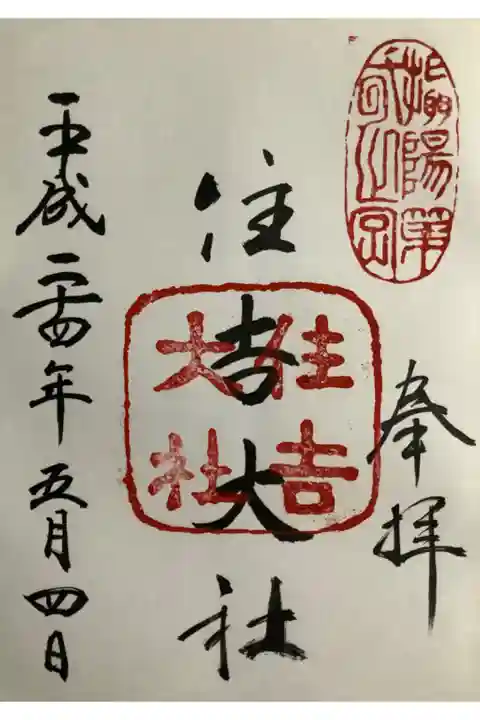 陽第
之宮
奉拝
住吉
大社
住吉大社
平成二十四年五月四日